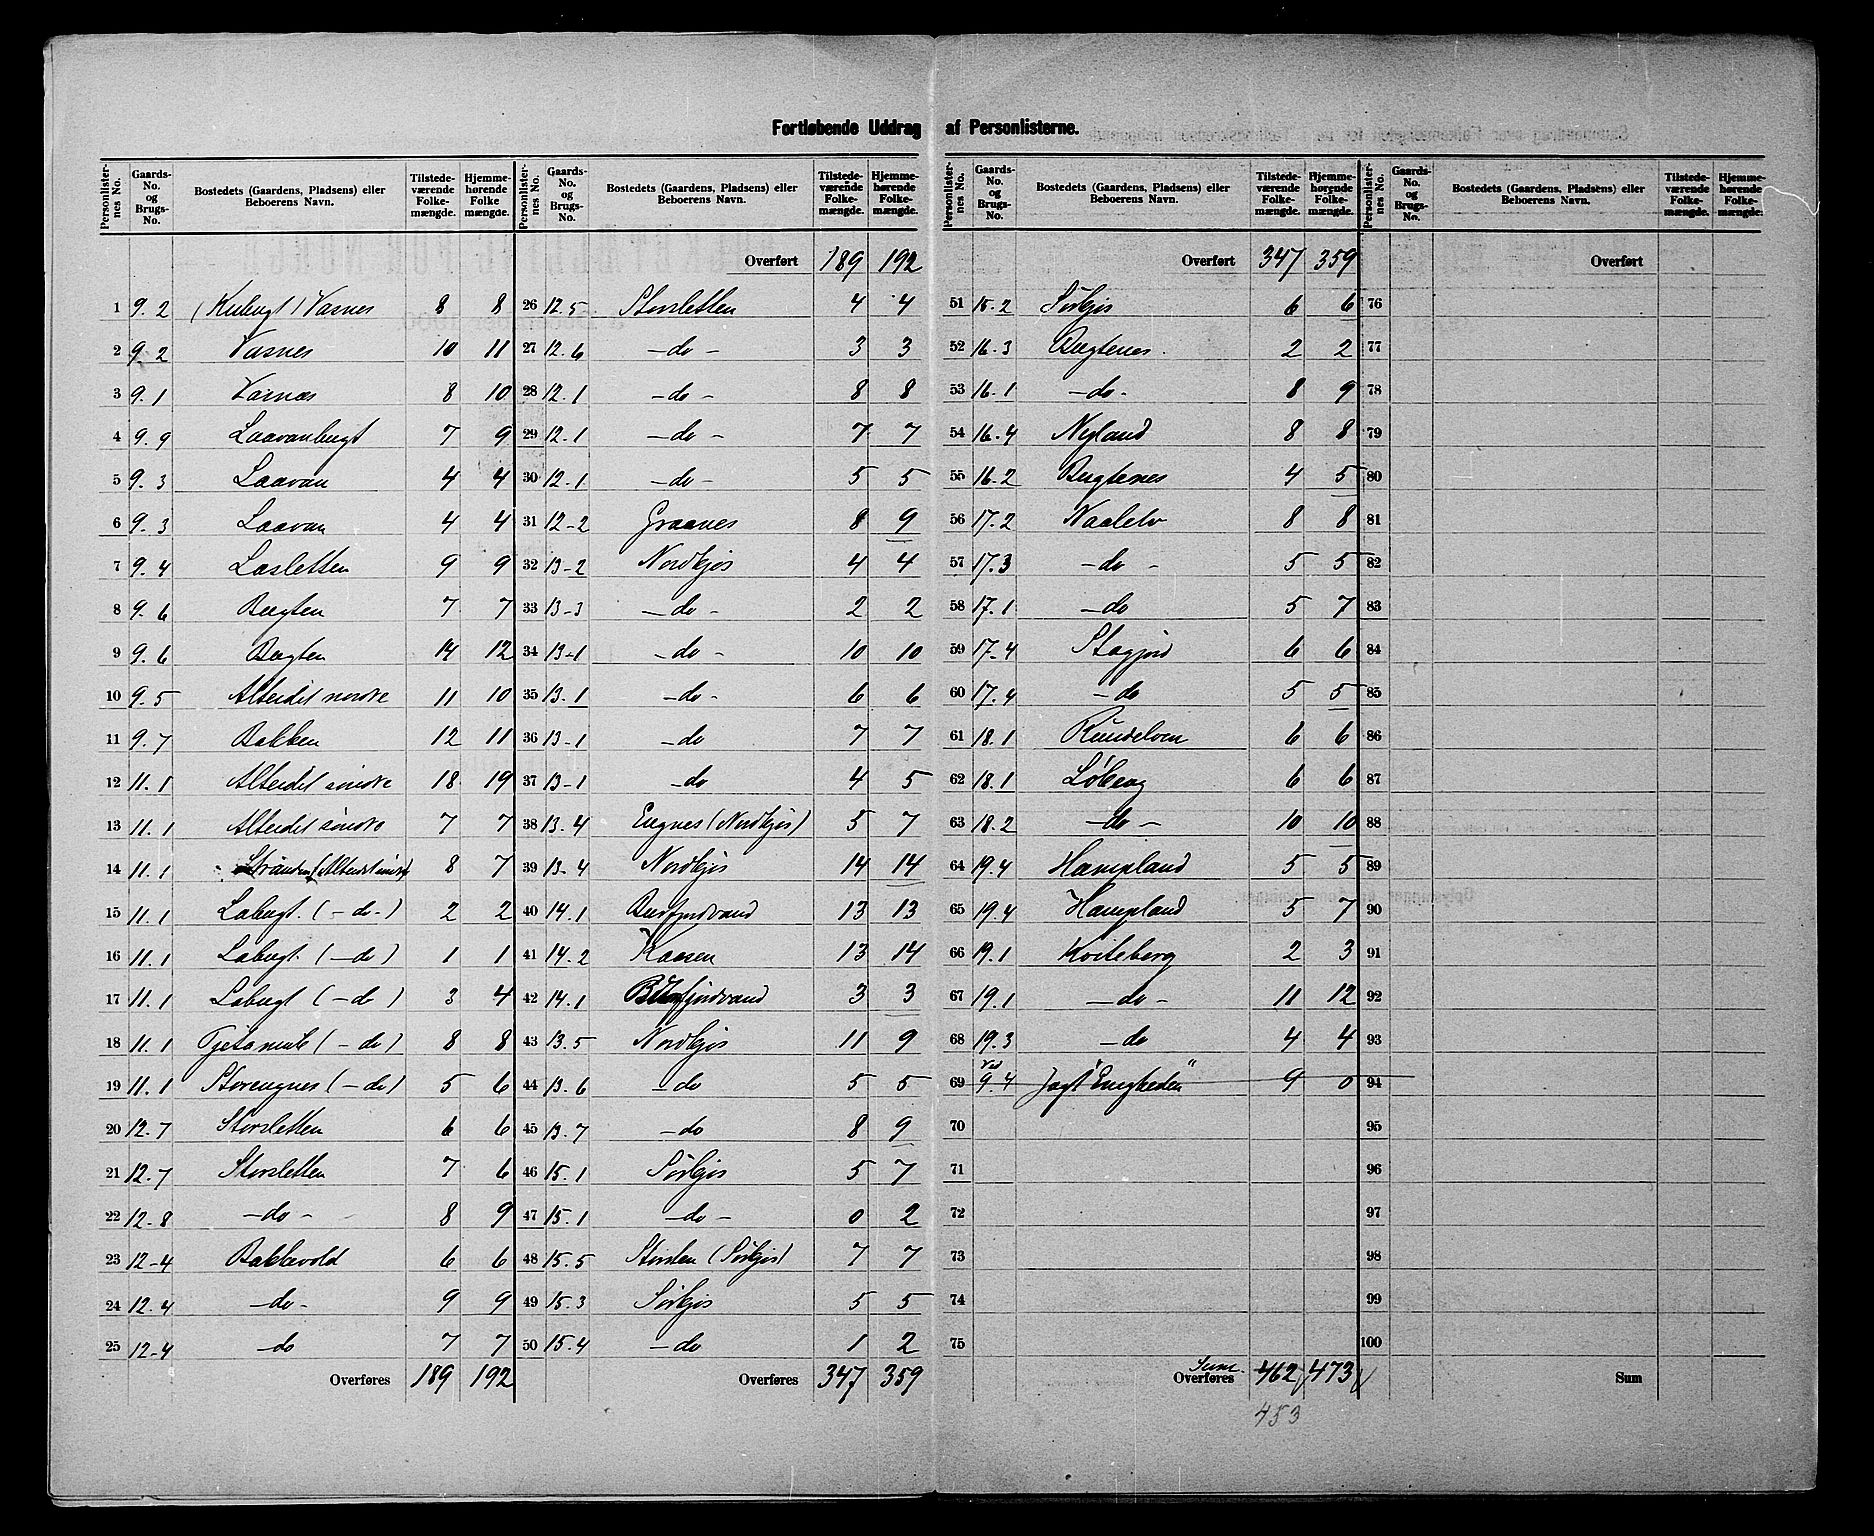 Fortløbende Uddrag af Personlisterne.
Personlisternes No. | Gaards-No. og Brugs-No. | Bostedets (Gaardens, Pladsens) eller Beboerens Navn. | Tilstedeværende Folkemængde. | Hjemmehørende Folkemængde.
1 9.2 (Kubugt) Vasnes 8 8
2 9.2 Vasnes 10 11
3 9.1 Vasnæs 8 10
4 9.9 Laavanbugt 7 9
5 9.3 Laavan 4 4
6 9.3 Laavan 4 4
7 9.4 Lasletten 9 9
8 9.6 Bugten 7 7
9 9.6 Bugten 14 12
10 9.5 Alteidet nordre 11 10
11 9.7 Bakken 12 11
12 11.1 Alteidet søndre 18 19
13 11.1 Alteidet søndre 7 7
14 11.1 Stranden (Alteidet søndre) 8 7
15 11.1 Labugt. (-do-) 2 2
16 11.1 Labugt. (-do) 1 1
17 11.1 Labugt (-do) 3 4
18 11.1 Tjetamule (-do) 8 8
19 11.1 Storengnes (-do) 5 6
20 12.7 Storsletten 6 6
21 12.7 Storsletten 7 6
22 12.8 -do- 8 9
23 12-4 Bakkevold 6 6
24 12.4 -do- 9 9
25 12-4 -do 7 7
Overføres 189 192
Personlisternes No. | Gaards-No. og Brugs-No. | Bostedets (Gaardens, Pladsens) eller Beboerens Navn. | Tilstedeværende Folkemængde. | Hjemmehørende Folkemængde.
Overført 189 192
26 12.5 Storsletten 4 4
27 12.6 -do- 3 3
28 12.1 -do- 8 8
29 12.1 -do- 7 7
30 12.1 -do- 5 5
31 12-2 Graanes 8 9
32 13-2 Nordkjos 4 4
33 13-3 -do- 2 2
34 13-1 -do- 10 10
35 13.1 -do- 6 6
36 13-1 -do 7 7
37 13-1 -do 4 5
38 13.4 Engnes (Nordkjos) 5 7
39 13-4 Nordkjos 14 14
40 14.1 Burfjordvand 13 13
41 14.2 Kaasen 13 14
42 14.1 Burfjordvand 3 3
43 13.5 Nordkjos 11 9
44 13.6 -do 5 5
45 13.7 -do 8 9
46 15.1 Sørkjos 5 7
47 15.1 -do- 0 2
48 15.5 (Sørkjos) 7 7
49 15.3 Sørkjos 5 5
50 15.4 -do 1 2
Overføres 347 359
Personlisternes No. | Gaards-No. og Brugs-No. | Bostedets (Gaardens, Pladsens) eller Beboerens Navn. | Tilstedeværende Folkemængde. | Hjemmehørende Folkemængde.
Overført 347 359
51 15.2 Sørkjos 6 6
52 16.3 Bugtenes. 2 2
53 16.1 -do- 8 9
54 16.4 Nyland 8 8
55 16.2 Bugtenes 4 5
56 17.2 Naalelv 8 8
57 17.3 -do- 5 5
58 17.1 -do 5 7
59 17.4 Stagjord 6 6
60 17.4 -do 5 5
61 18.1 Rundelven 6 6
62 18.1 Løberg 6 6
63 18.2 -do- 10 10
64 19.4 Hampland 5 5
65 19.4 Hampland 5 7
66 19.1 Kviteberg 2 3
67 19.1 -do- 11 12
68 19.3 -do 4 4
69 ved 9.4 Jagt "Enigheden" 9 0
70
71
72
73
74
75
Sum. Overføres 462 473
453
Personlisternes No. | Gaards-No. og Brugs-No. | Bostedets (Gaardens, Pladsens) eller Beboerens Navn. | Tilstedeværende Folkemængde. | Hjemmehørende Folkemængde.
Overført
76
77
78
79
80
81
82
83
84
85
86
87
88
89
90
91
92
93
94
95
96
97
98
99
100
Sum